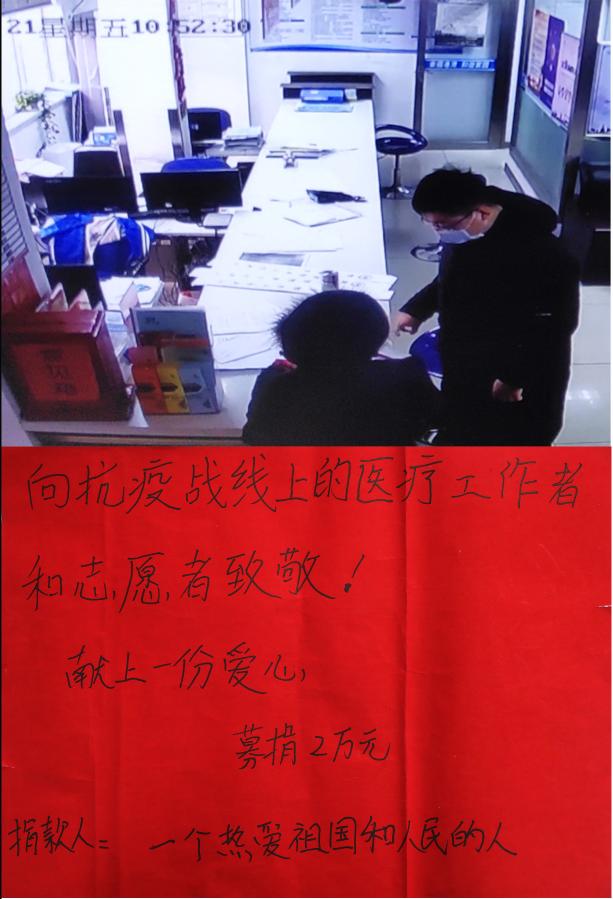 21星期五10:52:30
向抗疫战线上的医疗工作者
和志愿者致敬!
献上一份爱心,
募捐2万元
捐款人: 一个热爱祖国和人民的人